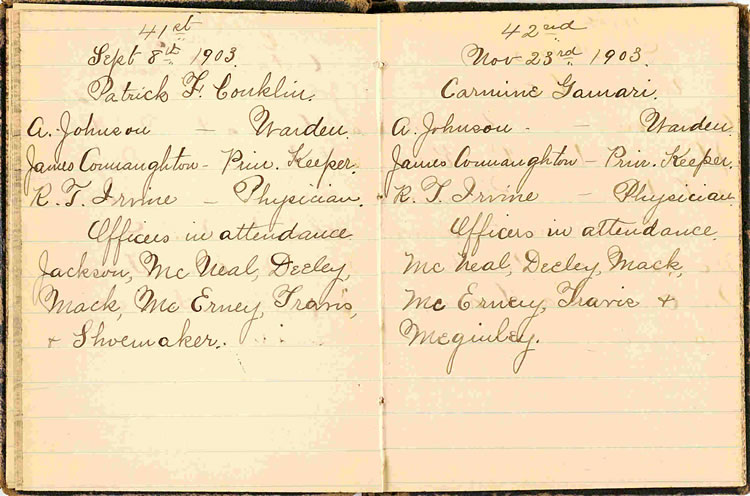 41st
Sept 8th 1903.
Patrick F. Conklin.
A. Johnson - Warden.
James Connaughton - Prin. Keeper.
R. T. Irvine - Physician.
Officers in attendance
Jackson, Mc Neal, Deeley,
Mack, Mc Erney, Travis,
+ Shoemaker.
42nd
Nov 23rd 1903.
Carmine Gamari.
A. Johnson. - Warden.
James Connaughton - Prin. Keeper.
R. T. Irvine - Physician.
Officers in attendance.
Mc Neal, Deeley, Mack,
Mc Erney, Travis +
Mcginley.